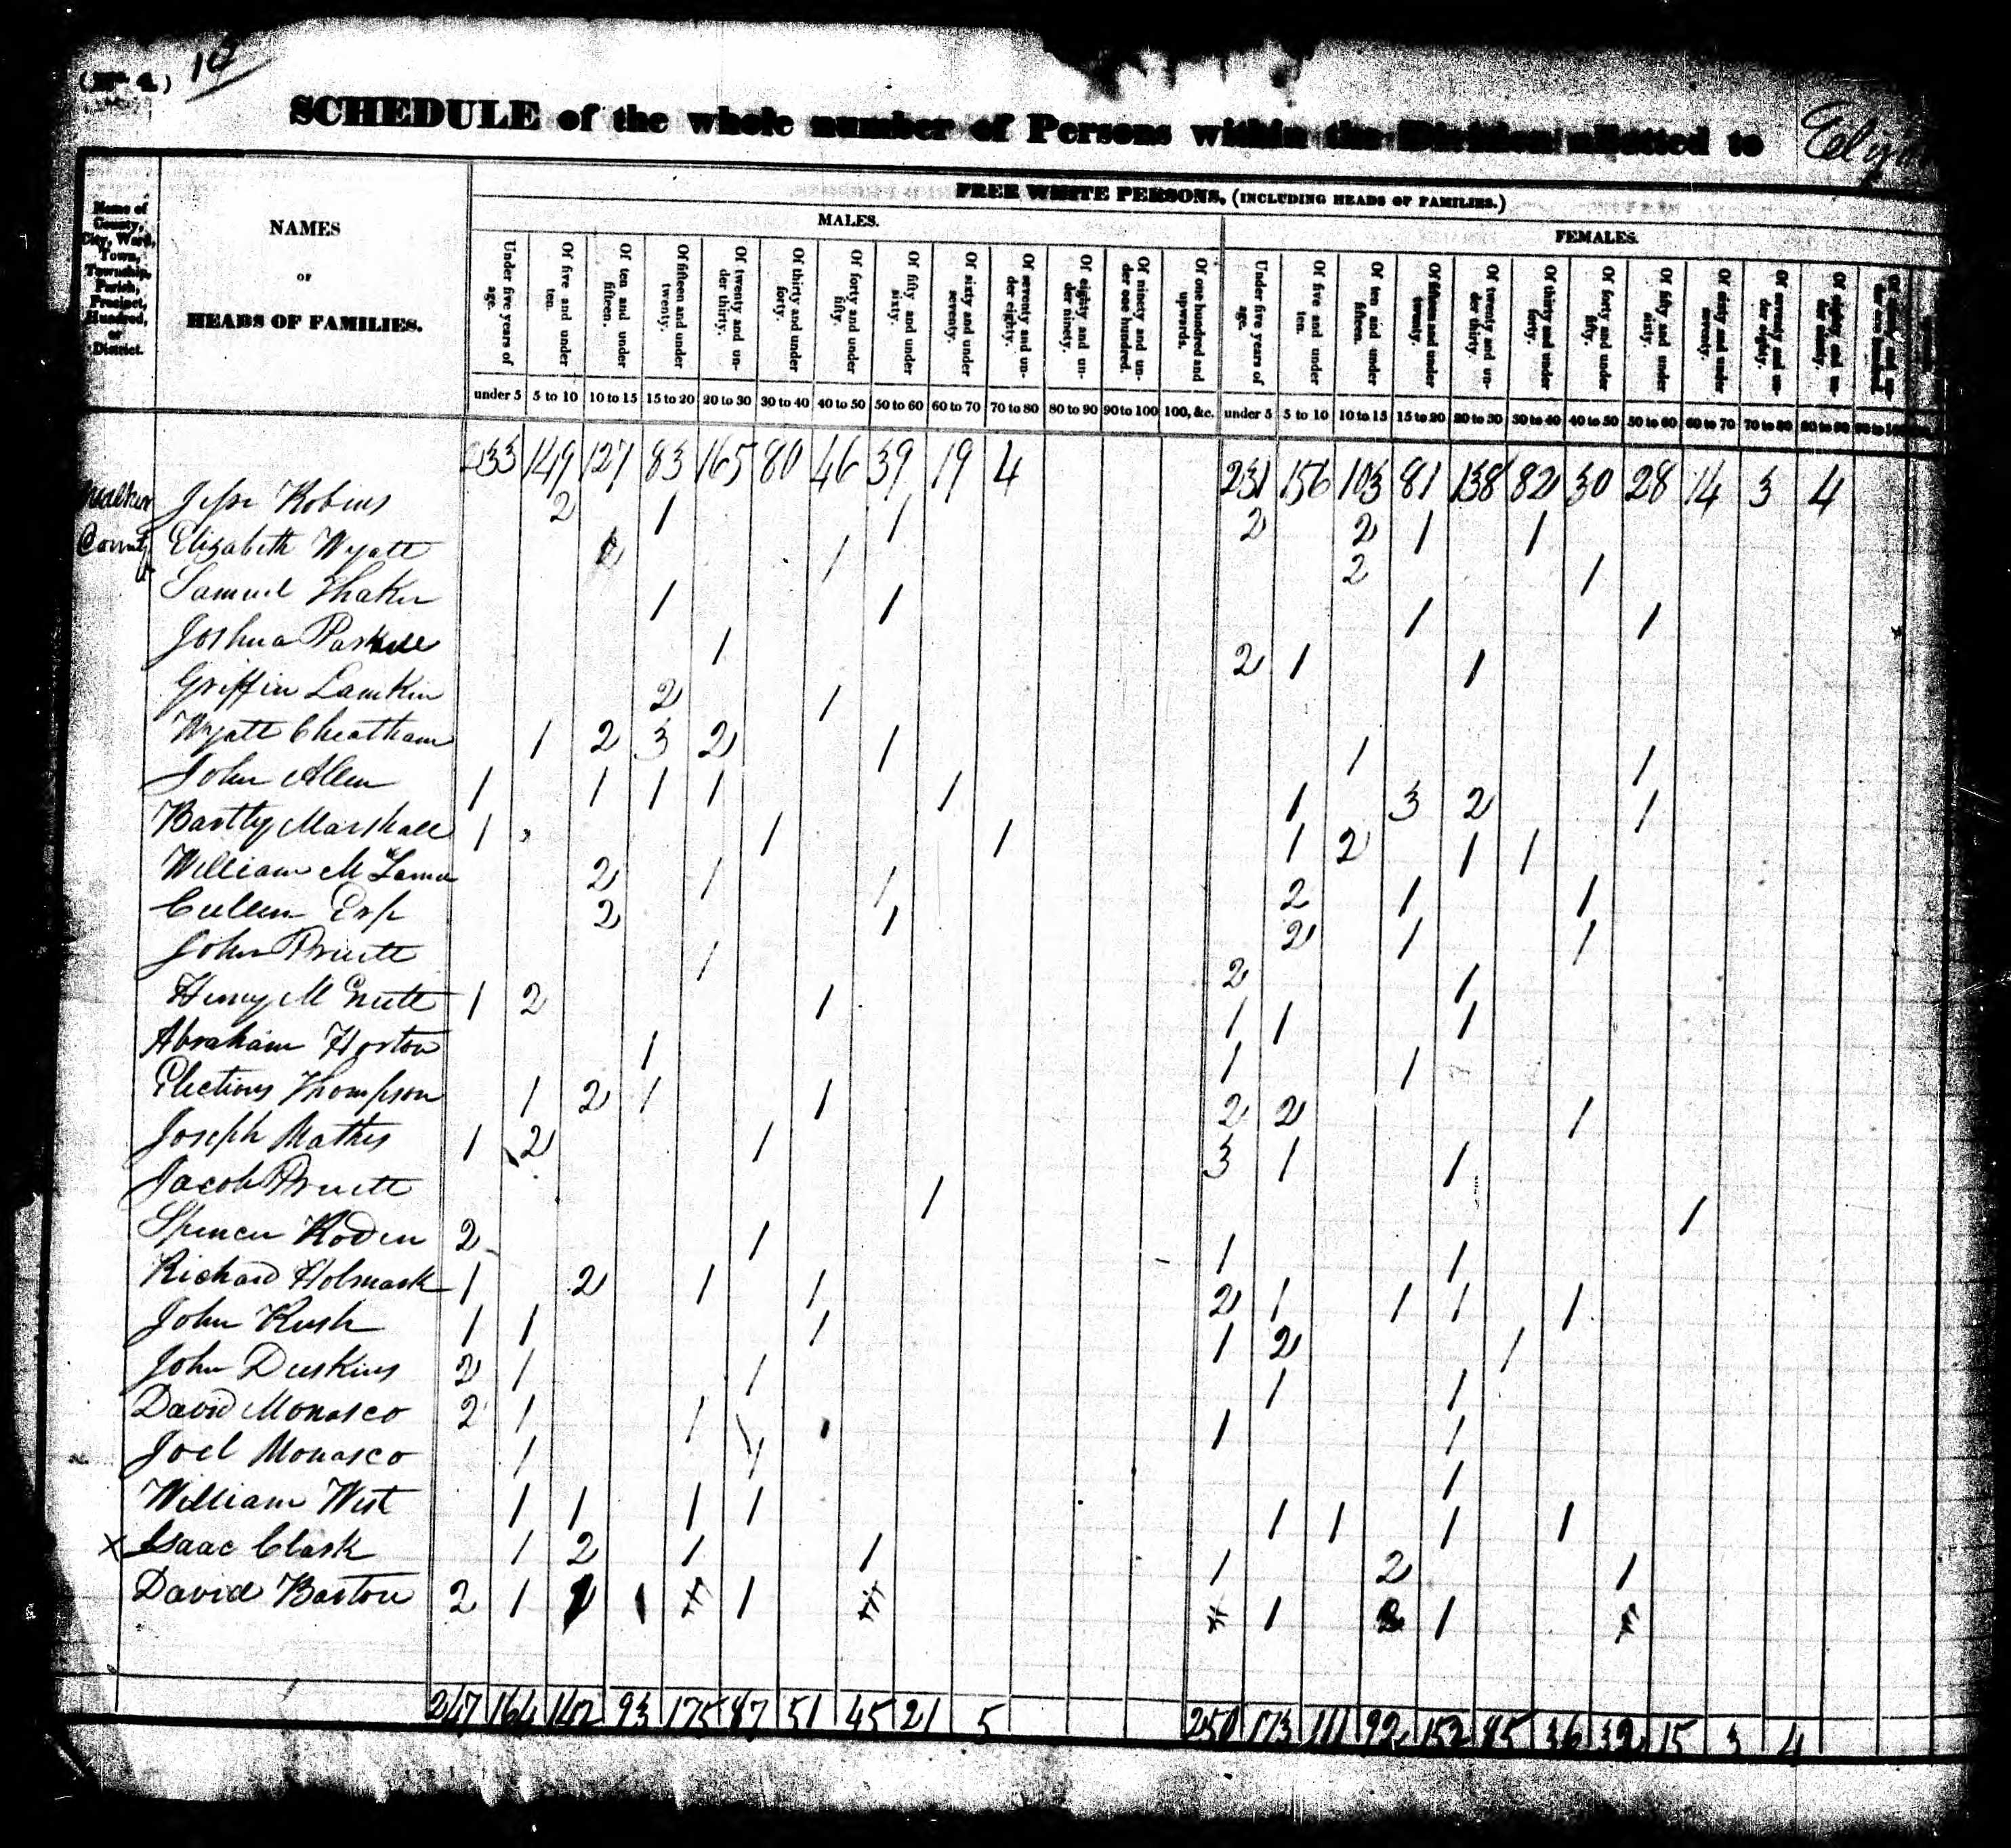 (No. 4.) 10
SCHEDULE of the whole number of Persons within the Division allotted to
FREE WHITE PERSONS, (INCLUDING HEADS OF FAMILIES.)
MALES.
FEMALES.
Name of County, City, Ward, Town, Township, Parish, Precinct, Hundred, or District.
NAMES
OF
HEADS OF FAMILIES.
Under five years of age.
Of five and under ten.
Of ten and under fifteen.
Of fifteen and under twenty.
Of twenty and under thirty.
Of thirty and under forty.
Of forty and under fifty.
Of fifty and under sixty.
Of sixty and under seventy.
Of seventy and under eighty.
Of eighty and under ninety.
Of ninety and under one hundred.
Of one hundred and upwards.
Under five years of age.
Of five and under ten.
Of ten and under fifteen.
Of fifteen and under twenty.
Of twenty and under thirty.
Of thirty and under forty.
Of forty and under fifty.
Of fifty and under sixty.
Of sixty and under seventy.
Of seventy and under eighty.
Of eighty and under ninety.
under 5 5 to 10 10 to 15 15 to 20 20 to 30 30 to 40 40 to 50 50 to 60 60 to 70 70 to 80 80 to 90 90 to 100 100, &c. under 5 5 to 10 10 to 15 15 to 20 20 to 30 30 to 40 40 to 50 50 to 60 60 to 70 70 to 80 80 to 90
233 149 127 83 165 80 46 39 19 4 231 156 103 81 138 82 30 28 14 3 4
Walker Jesse Robins 2 1 1 2 2 1 1
County Elizabeth Wyatt 2 1 2 1
Samuel Thaker 1 1 1 1
Joshua 1 2 1 1
Griffin Lamkin 2 1
Wyatt Cheatham 1 2 3 2 1 1 1
John Allen 1 1 1 1 1 1 3 2 1
Bartly Marshall 1 1 1 1 2 1 1
William M 2 1 1 2 1 1
Cullen Erp 2 1 2 1 1
John Pruett 1 2 1
Henry M 1 2 1 1 1 1
Abraham Horton 1 1 1
Elections Thompson 1 2 1 1 2 2 1
Joseph Mathis 1 2 1 3 1 1
Jacob Pruett 1 1
Spencer Roden 2 1 1 1
Richard Holmark 1 2 1 1 2 1 1 1 1
John Rush 1 1 1 1 2 1
John Duskins 2 1 1 1 1
David Monasco 2 1 1 1 1
Joel Monasco 1 1 1
William West 1 1 1 1 1 1 1 1
X Isaac Clark 1 2 1 1 1 2 1
David Barton 2 1 1 1 1 1
247 164 142 93 175 87 51 45 21 5 250 173 111 92 152 85 36 32 15 3 4